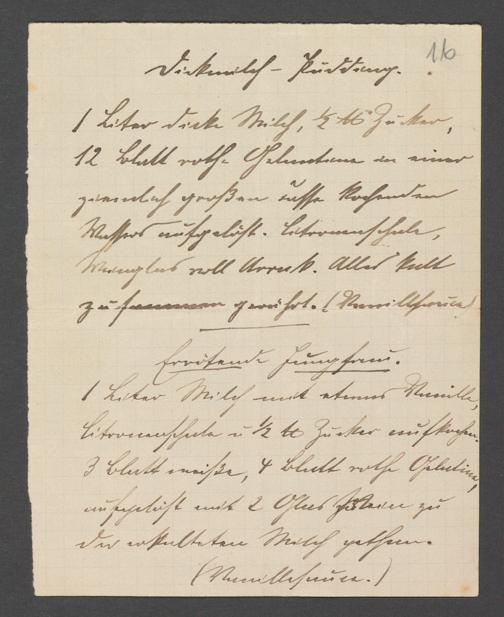 16
Dickmilch - Pudding.
1 Liter dicke Milch, ½ ℔ Zucker,
12 Blatt rothe Gelantine in einer
ziemlich großen Tasse kochenden
Wassers aufgelöst. Citronenschale,
Weinglas voll Arrak. Alles kalt
zusammen gerührt. (Vanillesauce)
Errötende Jungfrau.
1 Liter Milch mit etwas Vanille,
Citronenschale u ½ ℔ Zucker aufkochen.
3 Blatt weiße, 4 Blatt rothe Gelatine,
aufgelöst mit 2 Glas zu
der erkalteten Milch gethan.
(Vanillesauce.)